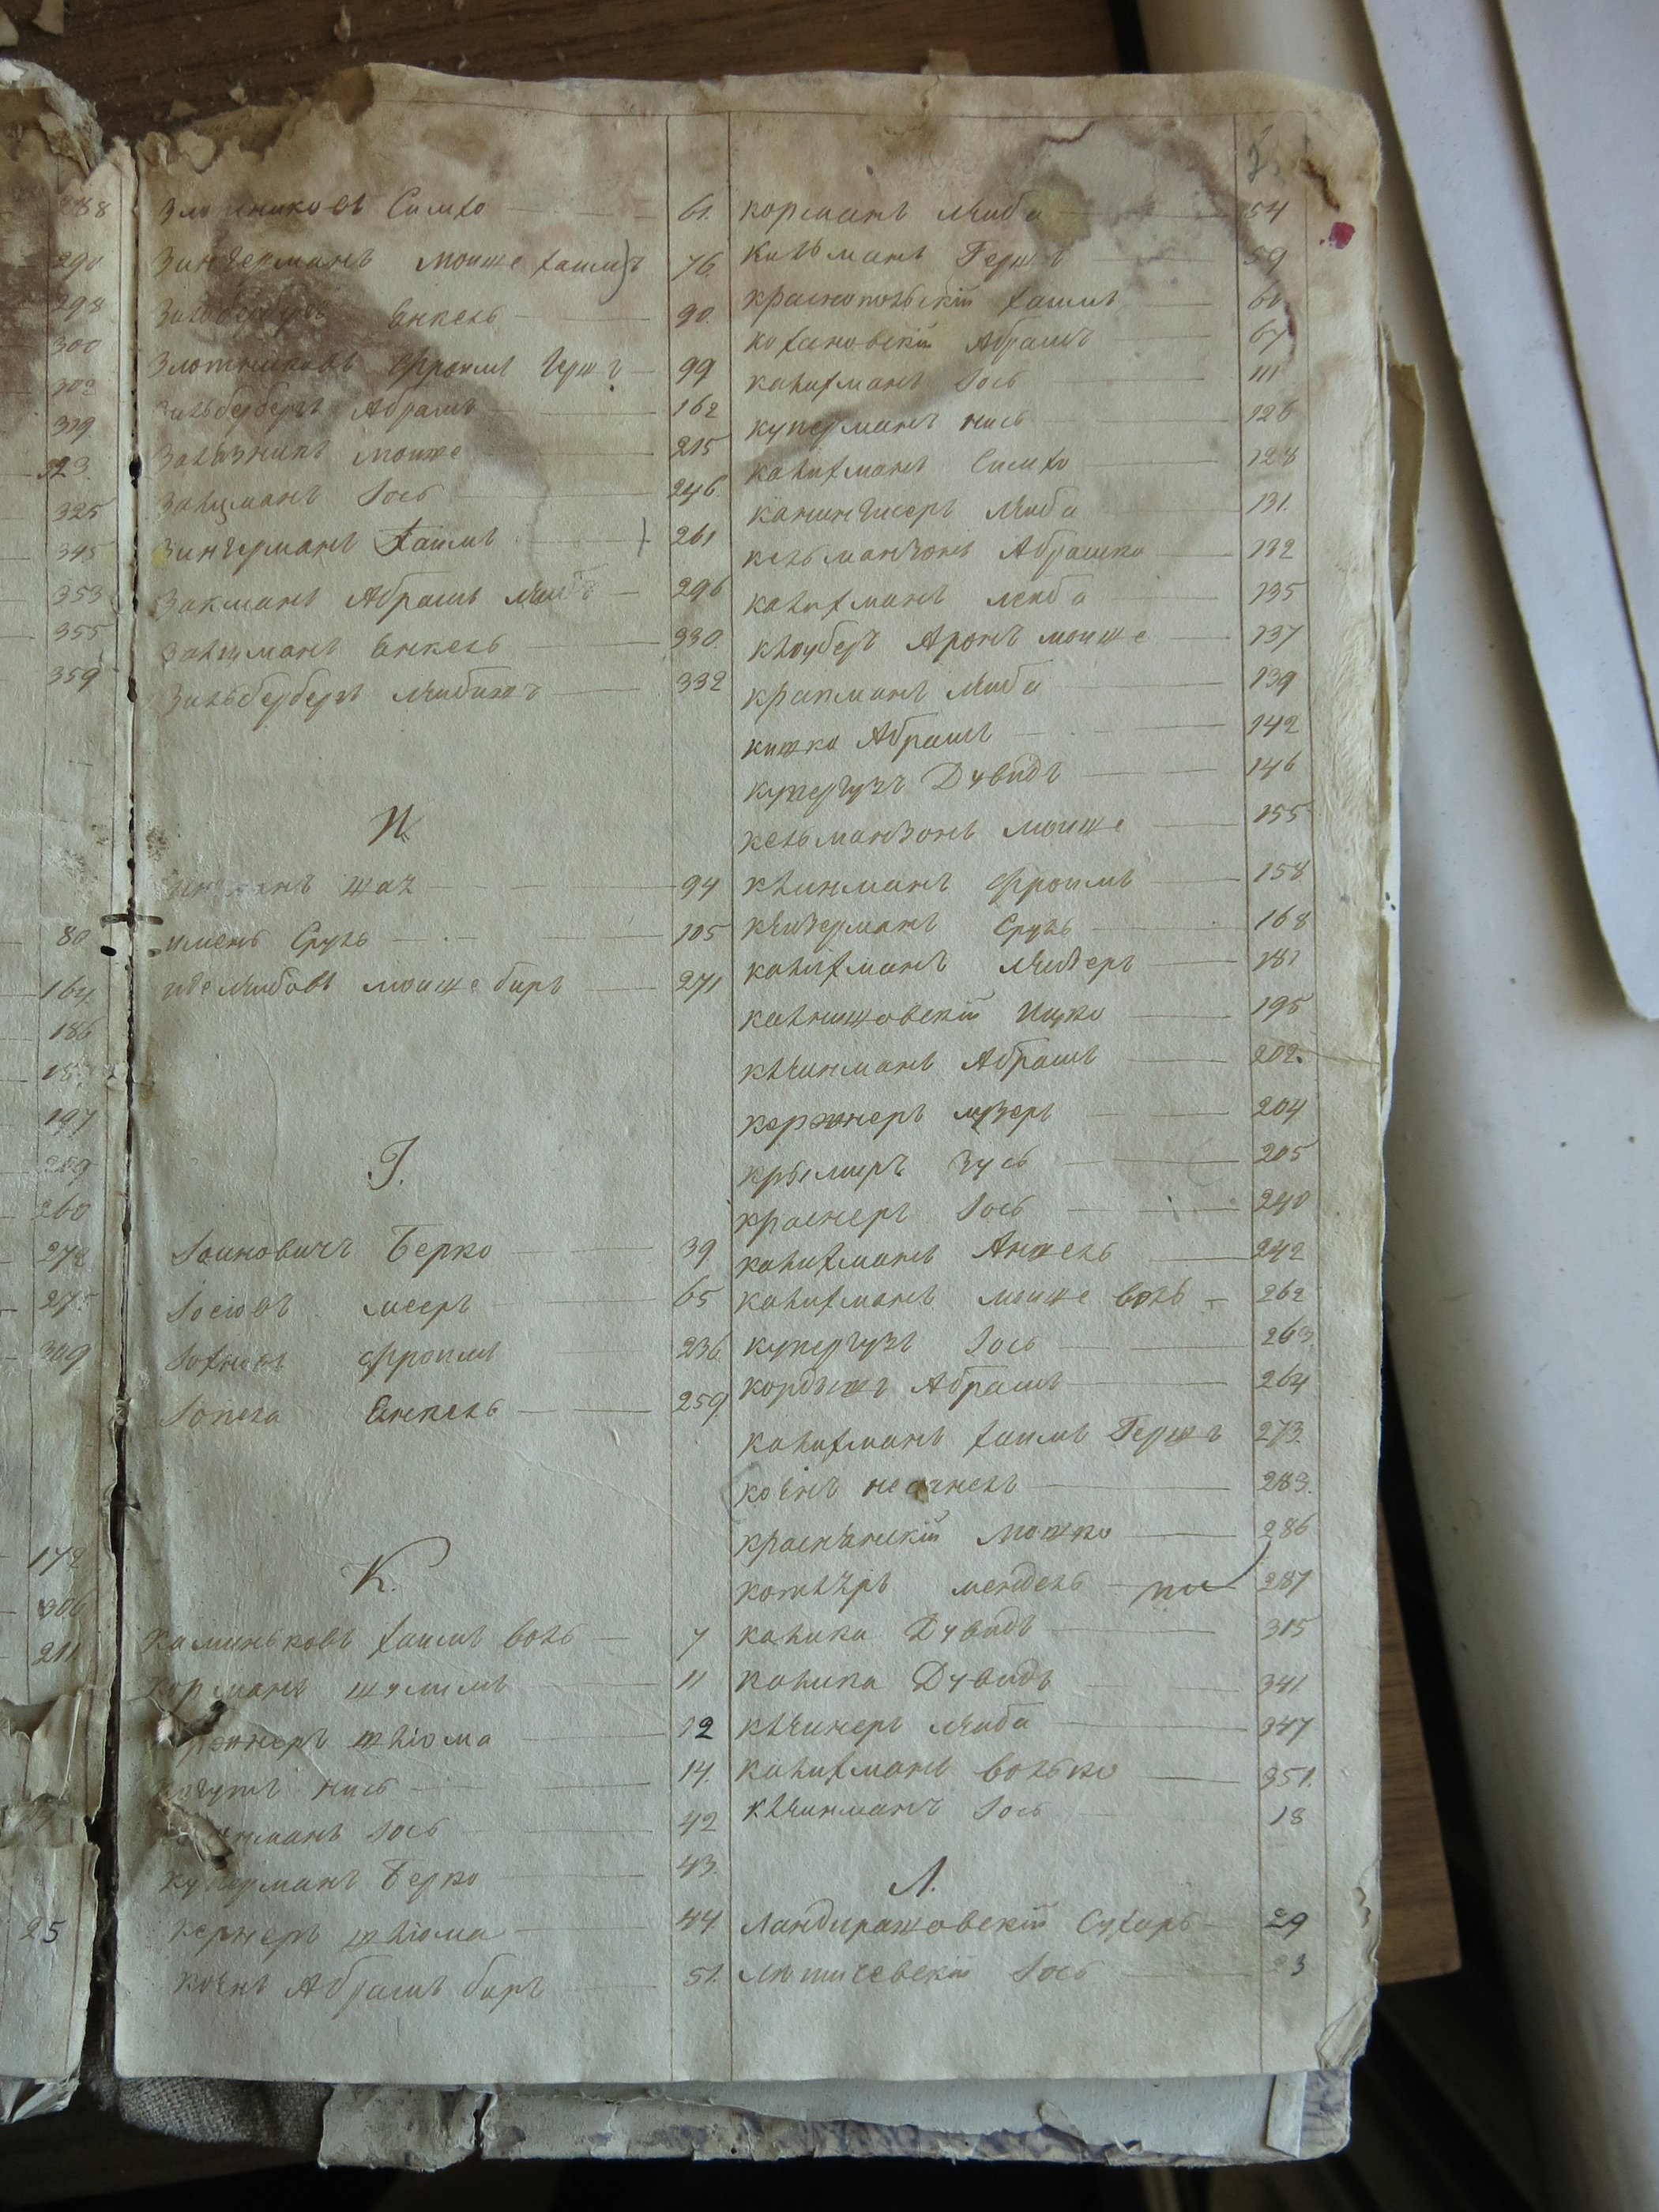 288
290
298
300
302
319.
323.
325
345
353
355
359
80
164.
186
197
259
260
272
275
309
172
306
211
25
Злотниковъ Симхо 61.
Зингерманъ Мошке Хаимъ) 76.
Зильбербергъ Янкель 90.
Злотниковъ Фроимъ Гершъ 99
Зильбербергъ Абрамъ 162
Мошке 215
Залцманъ Іось 246.
Зингерманъ Хаимъ 261
Закманъ Абрамъ Лейбъ 296
Залцманъ Янкель 330.
Зильбербергъ Лейбишъ 332
И.
94
Сруль 105
Мошке Беръ 271
І.
Іоиновичъ Берко 39
Іосіовъ Мееръ 65
Фроимъ 236
Янкель 259.
К.
Каминьковъ Хаимъ Воль 7
Корманъ Шулимъ 11
Шліома 12
Нись 14.
Іось 42
Куперманъ Берко 43.
Кернеръ Шліома 44.
Коенъ Абрамъ Беръ 51.
Корманъ Лейба 54
Кильманъ Гершъ 59
Краснопольскій Хаимъ 60
Кохановскій Абрамъ 67
Калихманъ Іось 111
Куперманъ Нись 126
Калихманъ Симхо 128
Лейба 131.
Кельманзонъ Абрашко 132
Калихманъ Лейба 135
Аронъ Мошке 137
Крапманъ Лейба 139
Кишка Абрамъ 142
Купергузъ Дувидъ 146
Кельманзонъ Мошке 155
Клинманъ Фроимъ 158
Клигерманъ Сруль 168
Калихманъ Лейзеръ 181
Калнишовскій Ицко 195
Клейнманъ Абрамъ 202.
Кержнеръ Лузеръ 204
Крымеръ Зусь 205
Краснеръ Іось 240
Калихманъ Аншель 242
Калихманъ Мошке Воль 262
Купергузъ Іось 263
Кордышъ Абрамъ 264
Калихманъ Хаимъ Гершъ 273.
Коенъ 283.
Краснянскій Мошко 286
Котляръ Мендель 287
Калика Дувидъ 315
Калика Дувидъ 341
Клейнеръ Лейба 347
Калихманъ Волько 351.
Клейнманъ Іось 18
Л.
Ландирашовскій Сухаръ 29
Литичевскій Іось 23